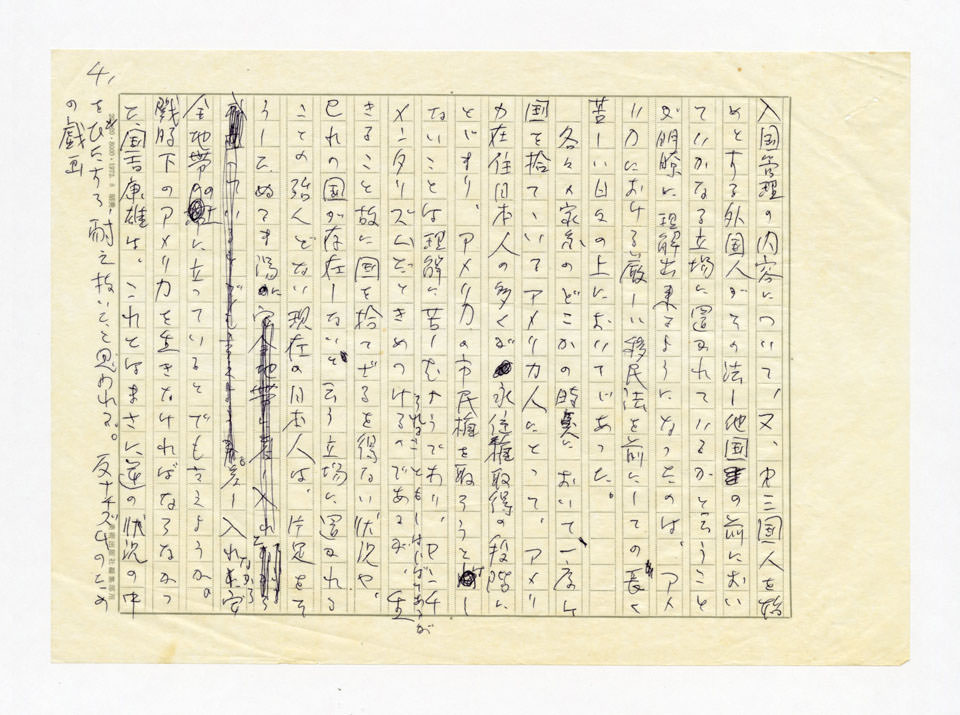 入国管理の内容について、又、第三国人を始
めとする外国人がその法し他国の前におい
ていかなる立場に置かれているかと云うこと
が明瞭に理解出来るようになったのは、アメ
リカにおける厳しい移民法を前にしての長く
苦しい日々の上においてであった。
各々の家系のどこかの時点において、一度は
国を捨てていてアメリカ人にとって、アメリ
カ在住日本人の多くが永住権取得の段階に
とどまり、アメリカの市民権を取ろうとし
ないことは理解に苦しむようであり、
メンタリズムだときめつけるのであるが、生
きること故に国を捨てざるを得ない状況や、
己れの国が存在しないと云う立場に置かれる
ことの殆んどない現在の日本人は、片足をそ
うしたぬるま湯に
差し入れながら安
全地帯に立っているとでも云えようか。
戦時下のアメリカを生きなければならなかっ
た国吉康雄は、これとはまさに逆の状況の中
をひたすら耐え抜いたと思われる。反ナチズムのため
の戯画
4,